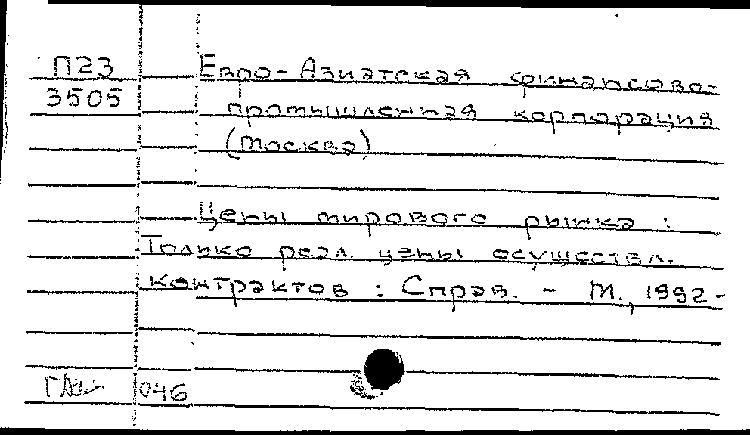 П23 Евро-Азиатская финансово-
3505 промышленная корпорация
(Москва)
Цены мирового рынка :
Только реал. цены осуществл.
контрактов : Справ. - М., 1992-
046